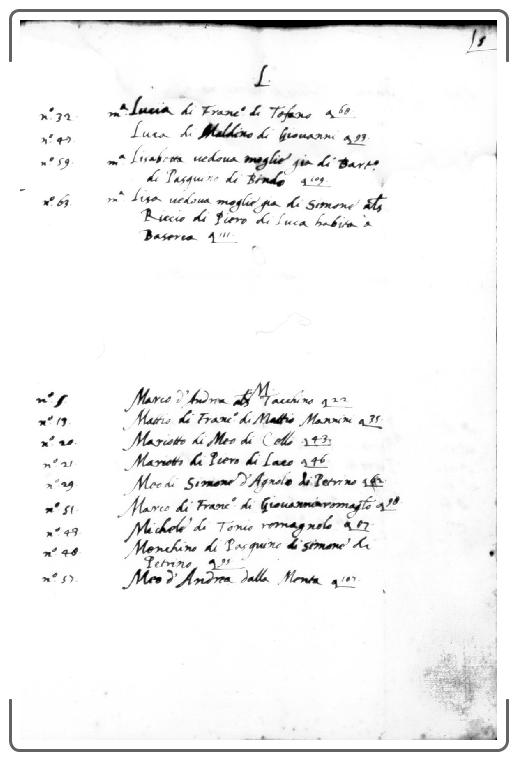 15
L.
nº. 32. mª Lucia di Francº di Tofano a 68.
nº. 47. Luca di Maldino di Giovanni a 93.
nº. 59. mª Lisabetta vedova moglie già di Bartº.
di Pasquino di Bindo a 109.
nº. 63. mª Lisa vedova moglie già di Simone als
Riccio di Piero di Luca habita a
a 111.
M
nº. Marco d'Andrea als Tacchino a 22.
nº. 19. Mattio di Francº di Mattio Mannini a 35.
nº. 20. Mariotto di Meo di Cello a 43.
nº. 21. Mariotto di Piero di a 46
nº. 29. Meo di Simone d'Agnolo di Petrino a 62
nº. 51. Marco di Francº di Giovanni a 98
nº. 49. Michele di Tonio romagnolo a
nº. 48. Menchino di Pasquino di Simone di
Petrino a
nº. 57. Meo d'Andrea dalla Monta a 107.